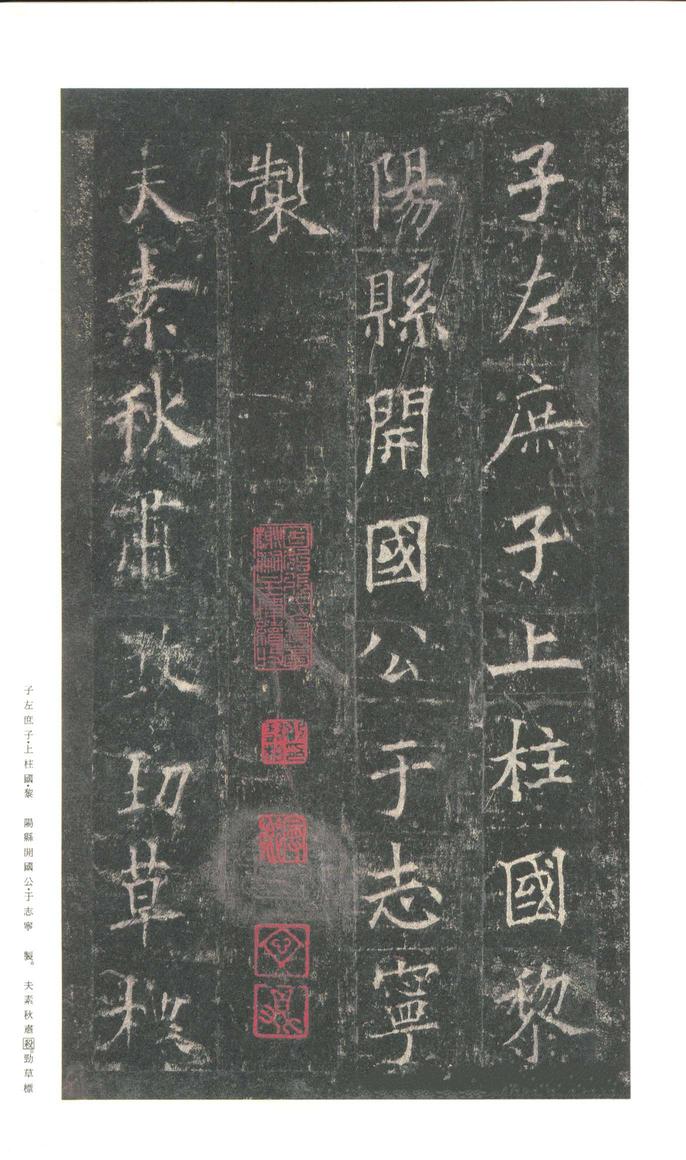 子左庶子上柱國黎
陽縣開國公于志寧
製
夫素秋肅勁草標
子左庶子上柱國·黎　陽縣開國公·于志寧　製。　夫素秋肅殺勁草標